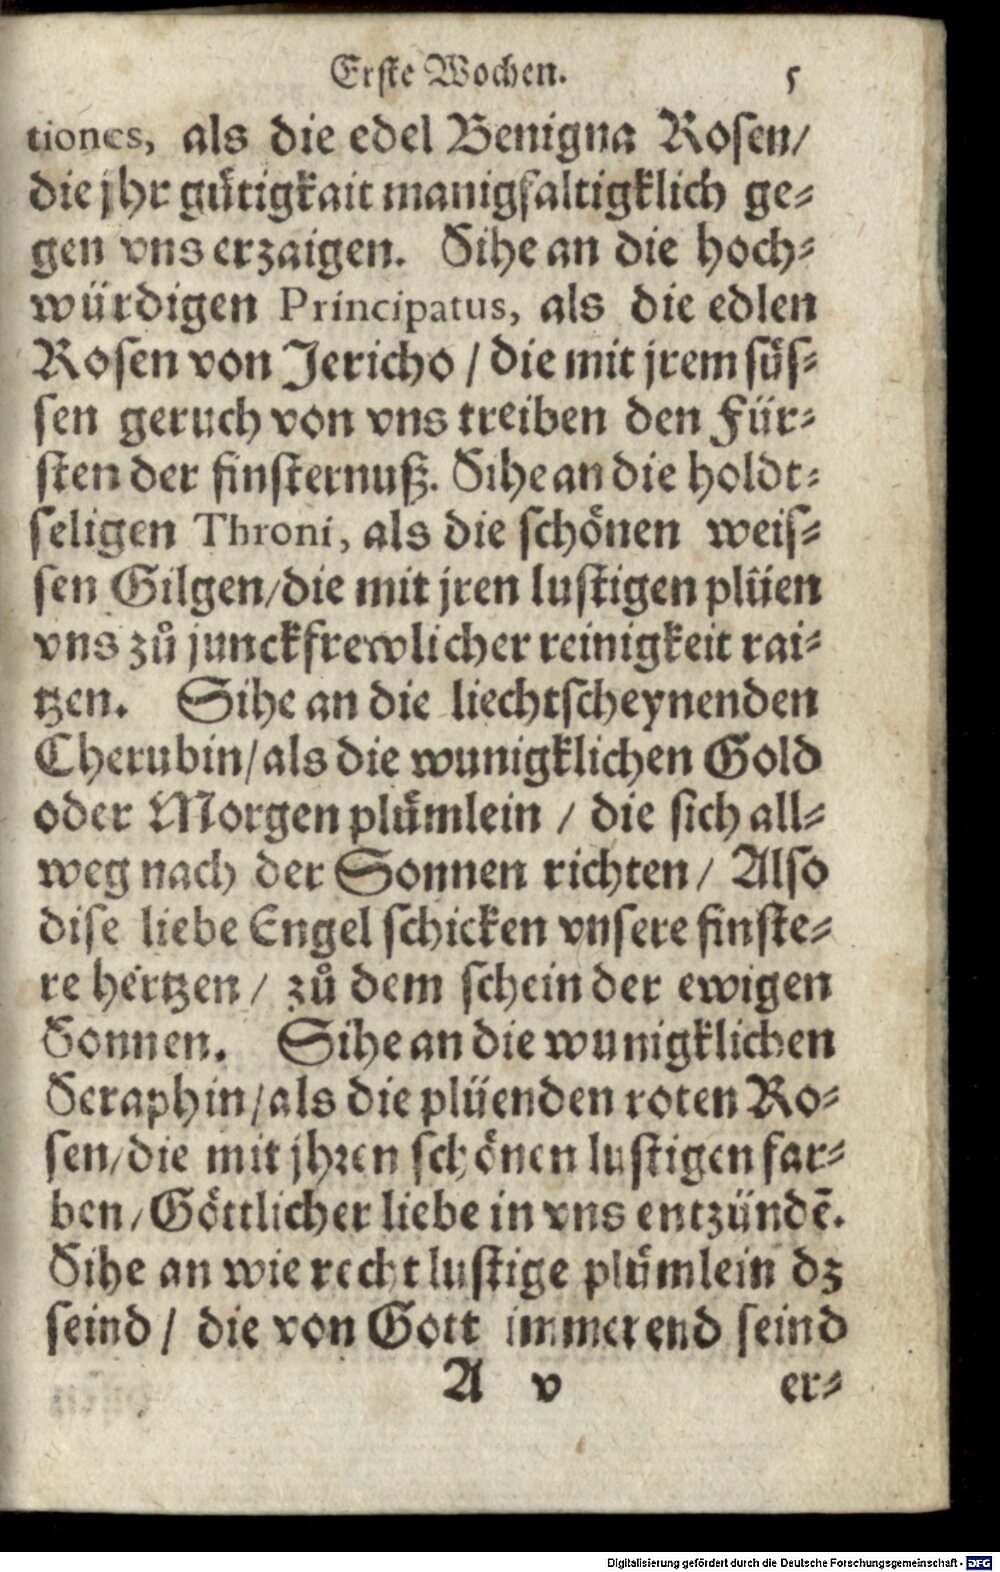 Erste Wochen. 5
tiones, als die edel Benigna Rosen/
die jhr gütigkait manigfaltigklich ge-
gen vns erzaigen. Sihe an die hoch-
würdigen Principatus, als die edlen
Rosen von Jericho / die mit jrem süs-
sen geruch von vns treiben den Für-
sten der finsternuß. Sihe an die holdt-
seligen Throni, als die schönen weis-
sen Gilgen/die mit jren lustigen plüen
vns zů junckfrewlicher reinigkeit rai-
tzen. Sihe an die liechtscheynenden
Cherubin/als die wunigklichen Gold
oder Morgen plümlein / die sich all-
weg nach der Sonnen richten/ Also
dise liebe Engel schicken vnsere finste-
re hertzen / zů dem schein der ewigen
Sonnen. Sihe an die wunigklichen
Seraphin/als die plüenden roten Ro-
sen/die mit jhren schönen lustigen far-
ben/Göttlicher liebe in vns entzündē.
Sihe an wie recht lustige plümlein dz
seind / die von Gott immerend seind
A v er-
Digitalisierung gefördert durch die Deutsche Forschungsgemeinschaft - DFG